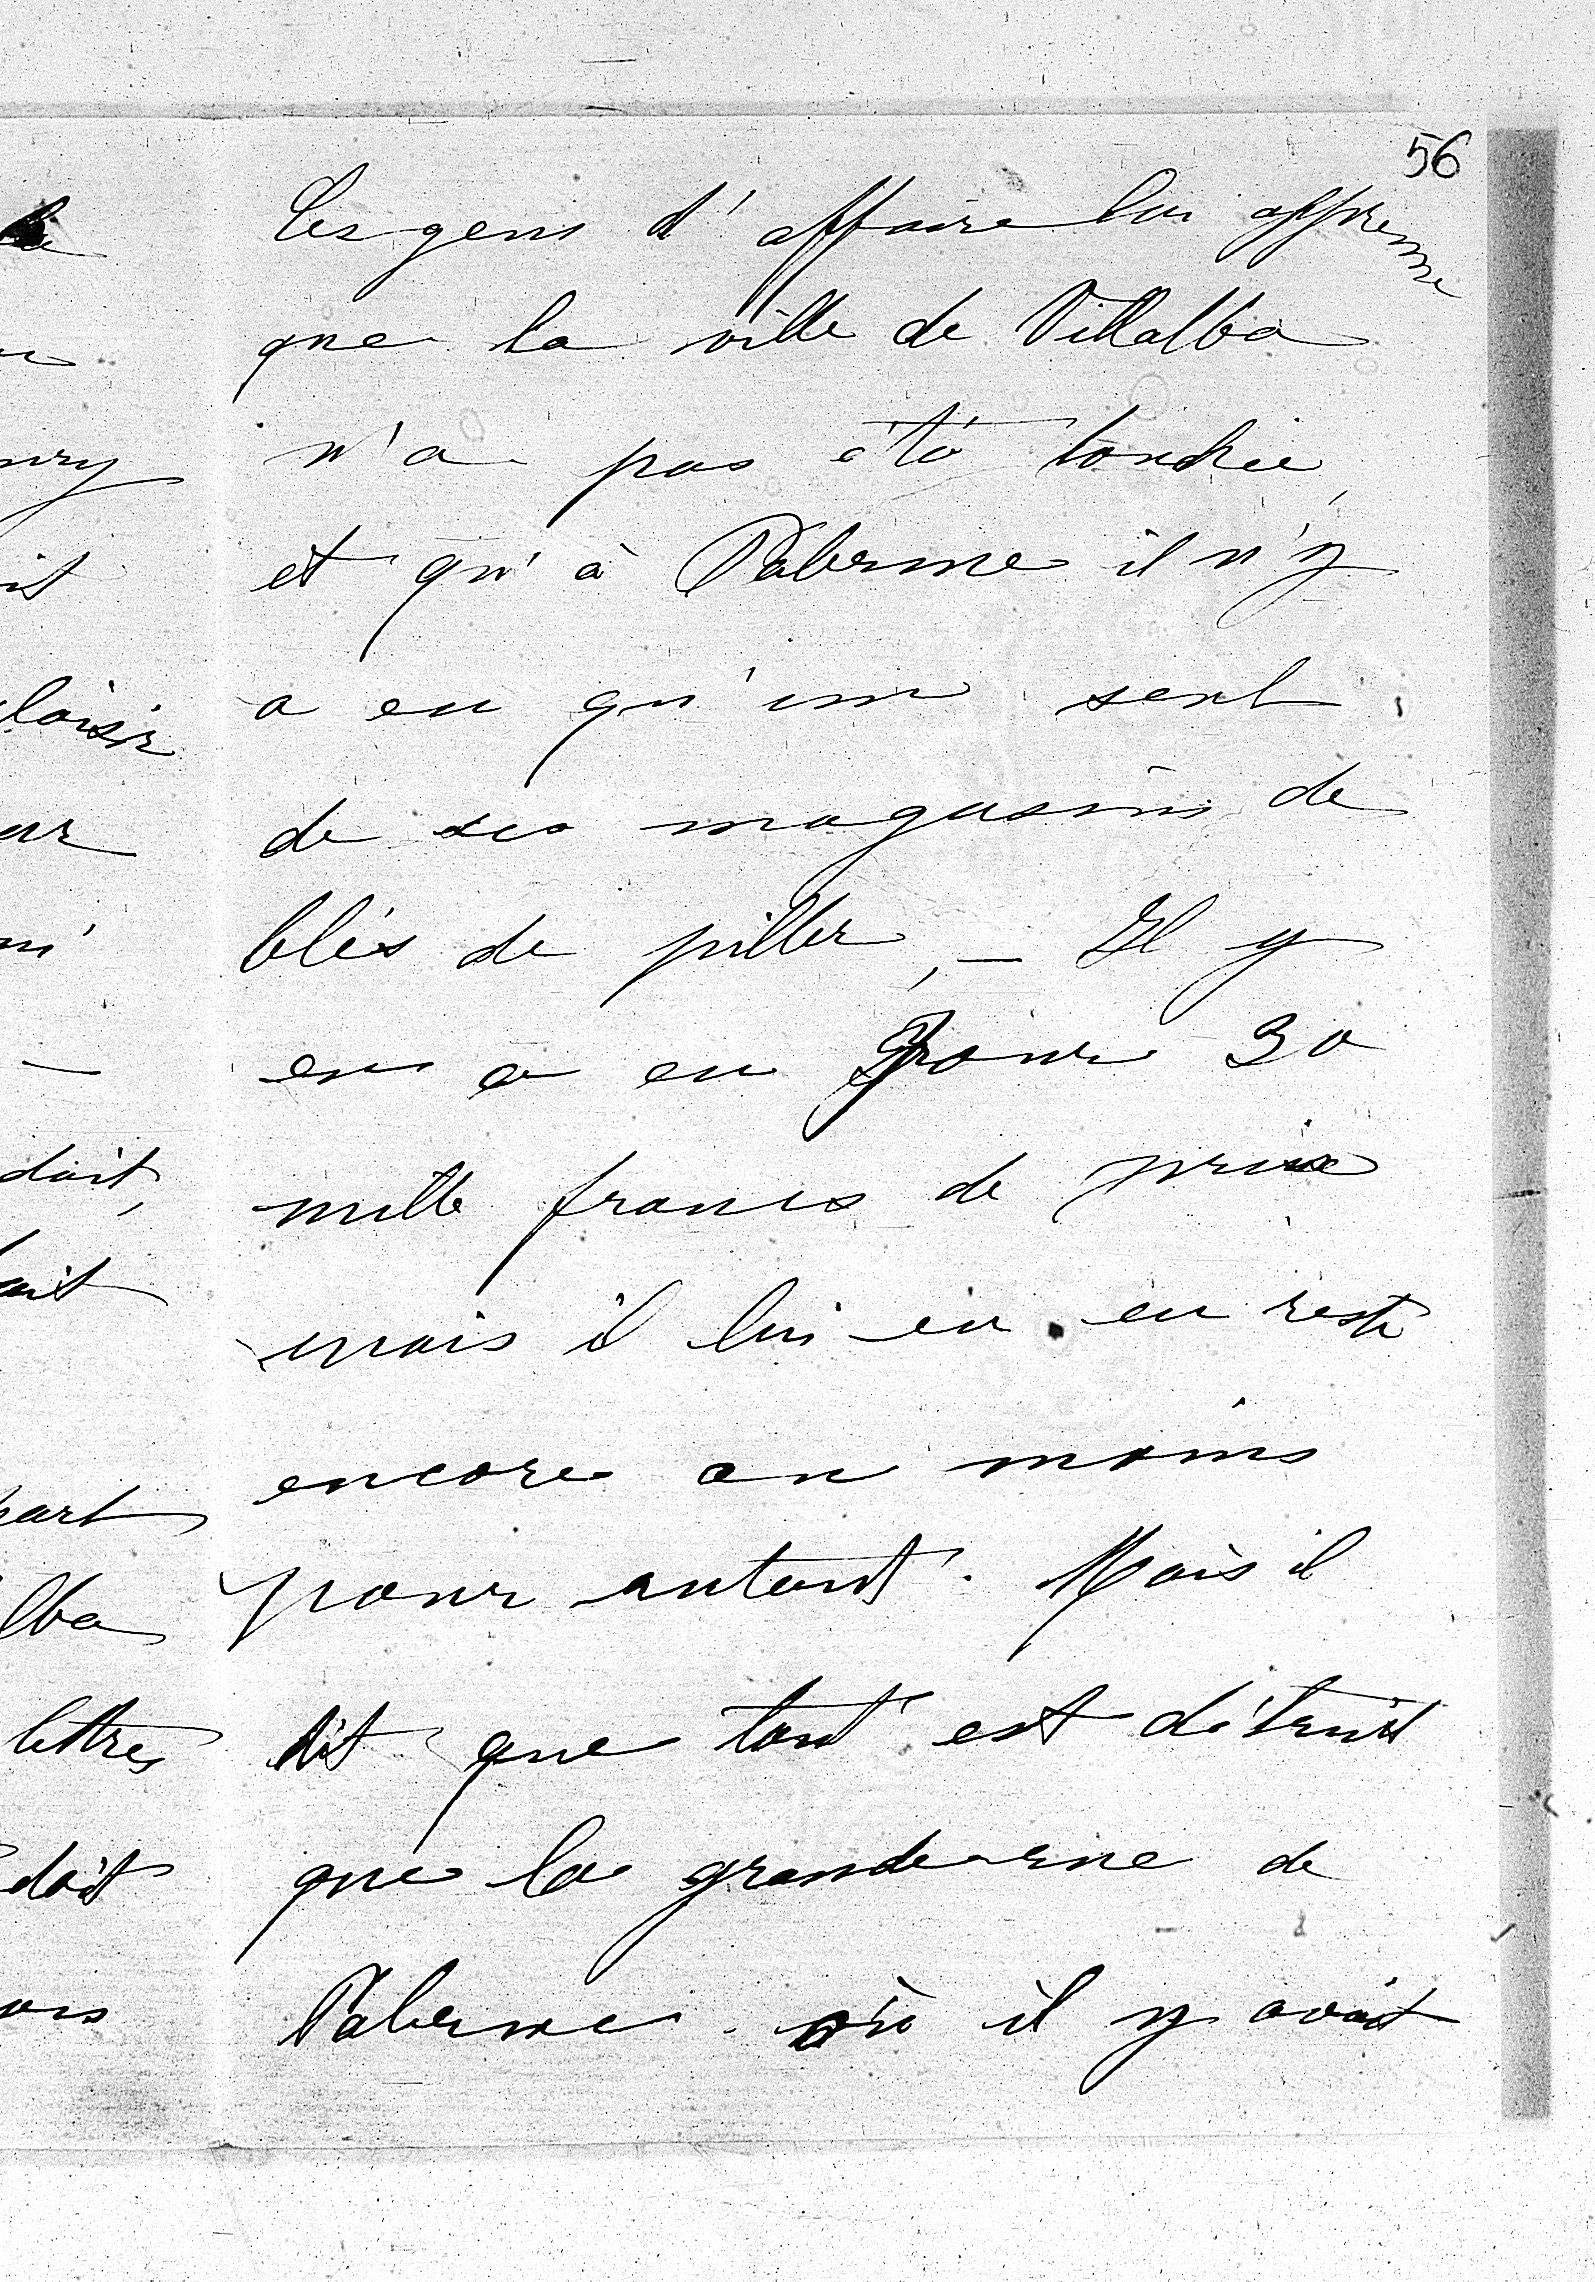 56
les gens d'affaire lui apprenne
que la ville de Villalba
n'a pas été touchée,
et qu'à Palerme il n'y
a eu qu'un seul
de ses magasins de
blés de piller, — Il y
en a eu pour 30
mille francs de prix
mais il lui en en reste
encore au moins
pour autant. Mais il
dit que tout est détruit
que la grande rue de
Palerme où il y avait
loisir
doit,
lettres
doit